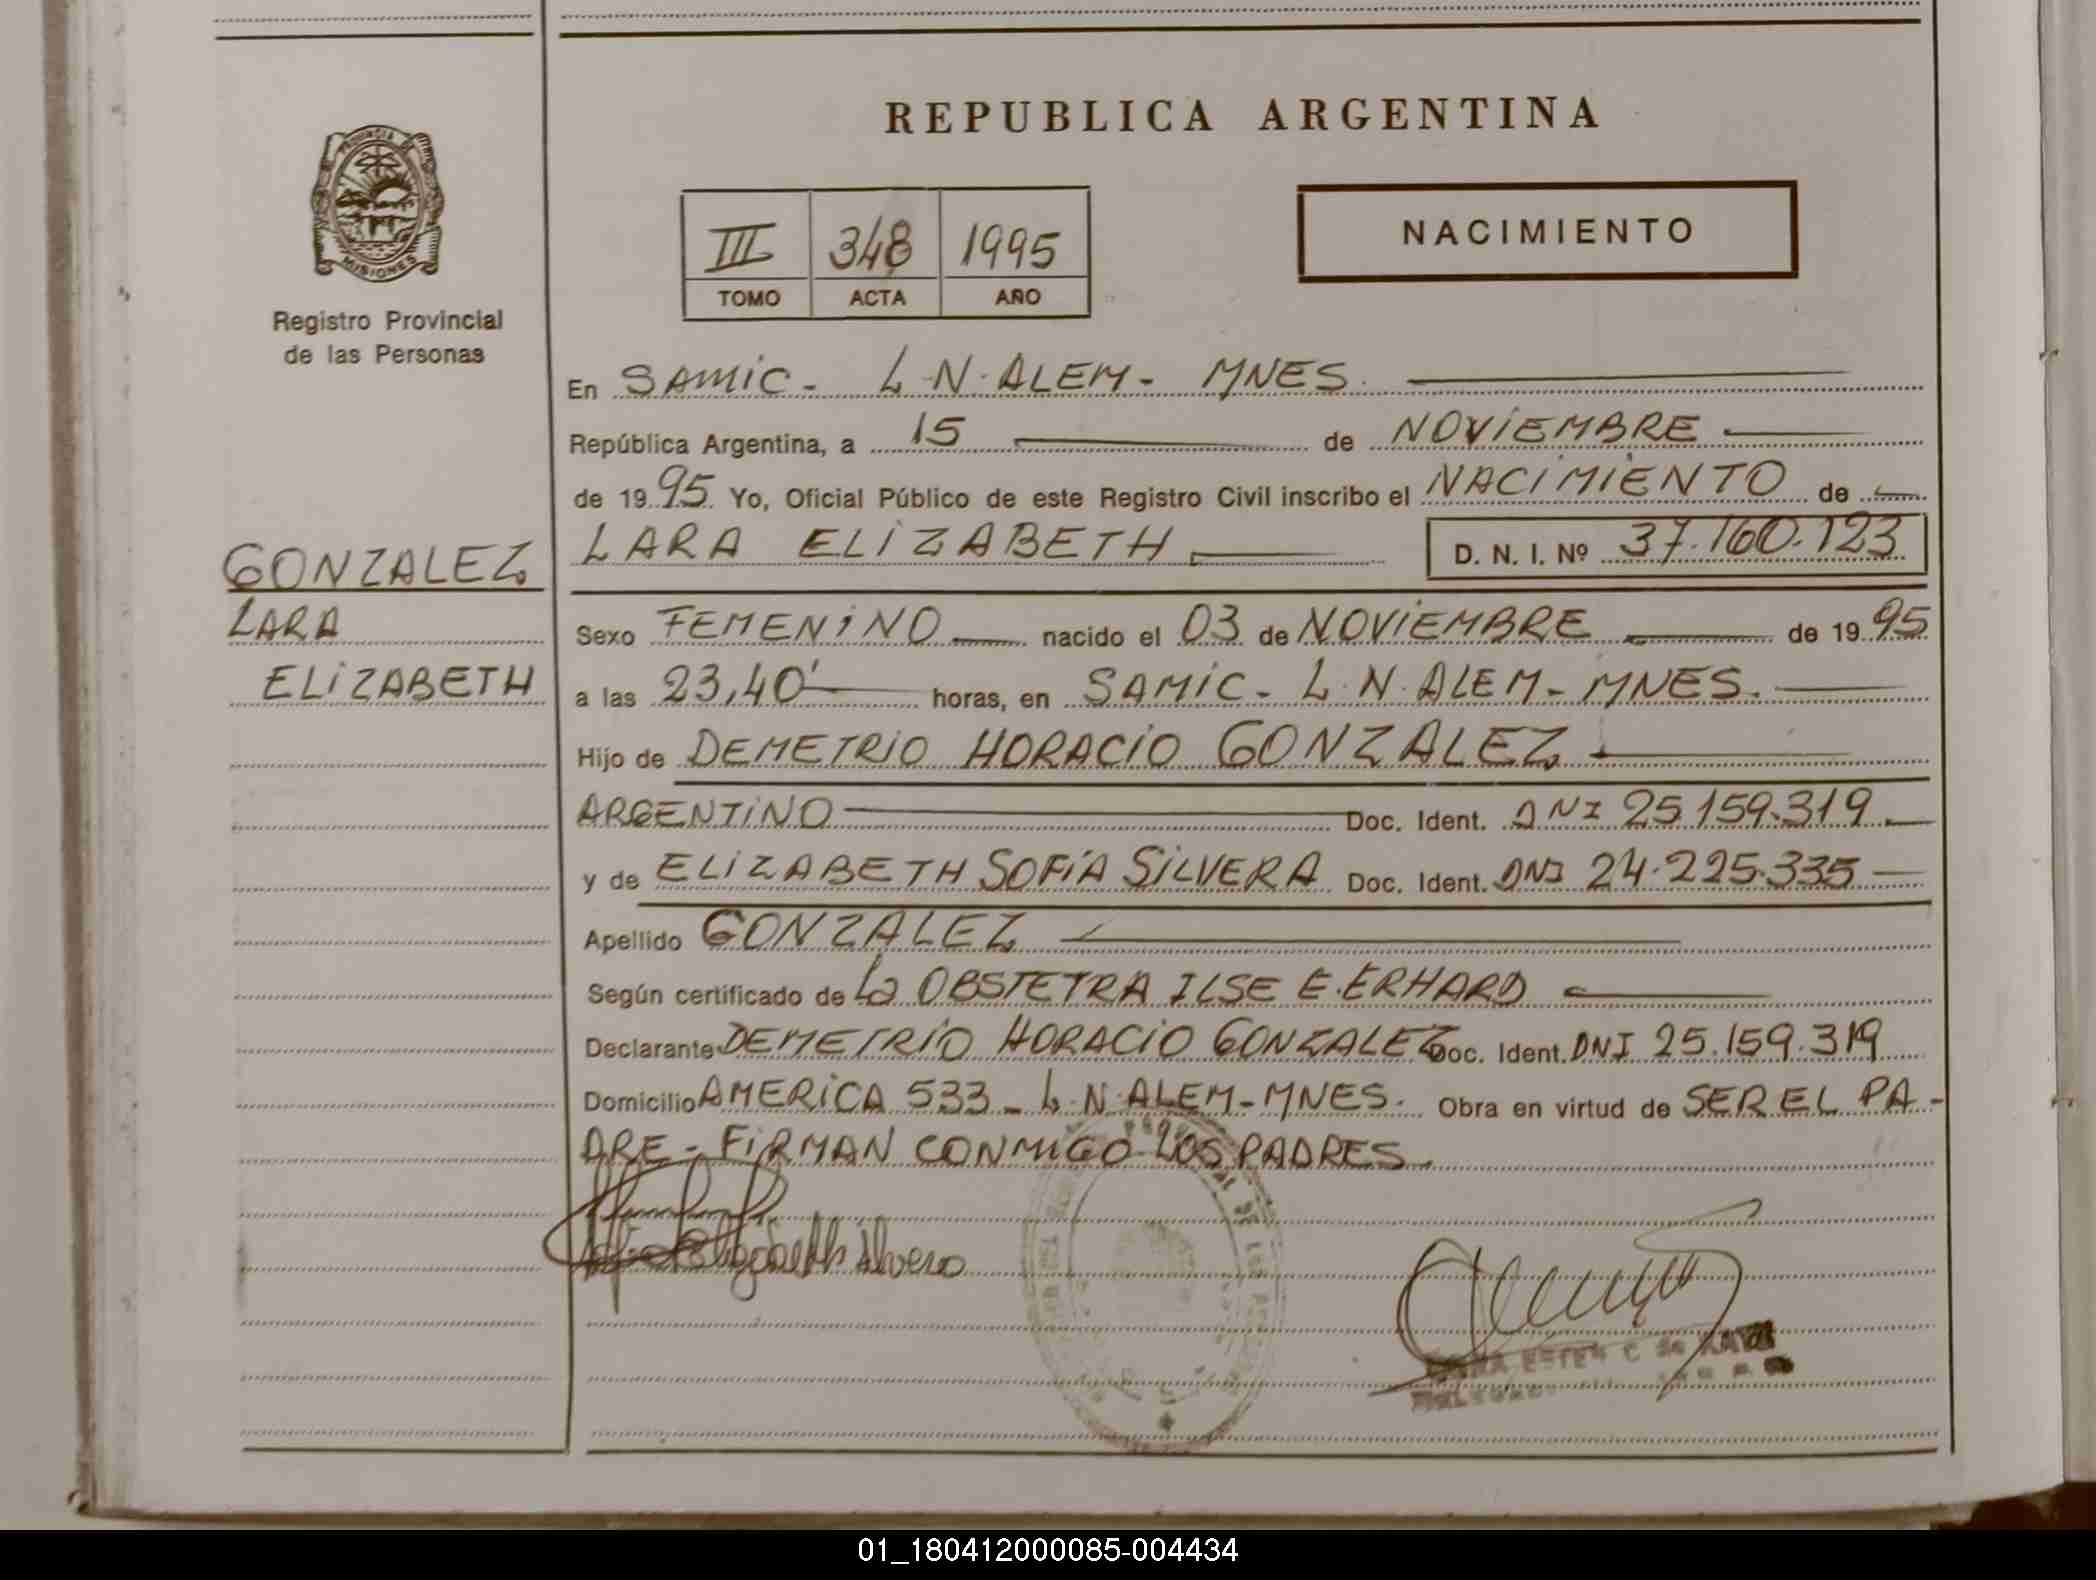 PROVINCIA DE
MISIONES
Registro Provincial
de las Personas
GONZALEZ
LARA
ELIZABETH
REPUBLICA ARGENTINA
III 348 1995
TOMO ACTA AÑO
NACIMIENTO
En SAMIC - L.N. ALEM - MNES.
República Argentina, a 15 de NOVIEMBRE
de 1995 Yo, Oficial Público de este Registro Civil inscribo el NACIMIENTO de
LARA ELIZABETH D. N. I. Nº 37.160.123
Sexo FEMENINO nacido el 03 de NOVIEMBRE de 1995
a las 23,40' horas, en SAMIC - L.N. ALEM - MNES.
Hijo de DEMETRIO HORACIO GONZALEZ
ARGENTINO Doc. Ident. DNI 25.159.319
y de ELIZABETH SOFIA SILVERA Doc. Ident. DNI 24.225.335
Apellido GONZALEZ
Según certificado de La OBSTETRA ILSE E. ERHARD
Declarante DEMETRIO HORACIO GONZALEZ Doc. Ident. DNI 25.159.319
Domicilio AMERICA 533 - L.N. ALEM - MNES. Obra en virtud de SER EL PA-
DRE - FIRMAN CONMIGO LOS PADRES.
ESTER C de
01_180412000085-004434